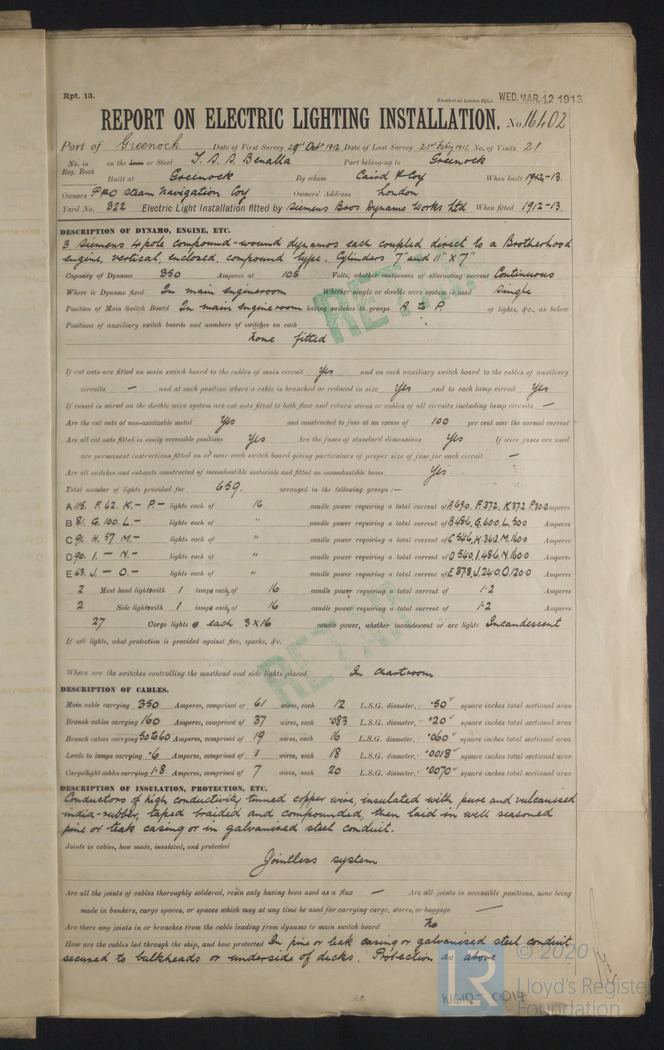 Rpt. 13.
Received at London Office WED. MAR. 12 1913
REPORT ON ELECTRIC LIGHTING INSTALLATION. No. 16402
Port of Greenock Date of First Survey 29th Oct 1912 Date of Last Survey 21st Feby 1913 No. of Visits 21
No. in Reg. Book on the Iron or Steel T.S.S. Benalla Port belonging to Greenock
Built at Greenock By whom Caird & Coy When built 1912-13.
Owners P&O Steam Navigation Coy Owners' Address London
Yard No. 322 Electric Light Installation fitted by Siemens Bros Dynamo Works Ltd When fitted 1912-13.
DESCRIPTION OF DYNAMO, ENGINE, ETC.
3 Siemens 4 pole compound-wound dynamos each coupled direct to a Brotherhood
engine, vertical, enclosed, compound type. Cylinders 7" and 11" x 7"
Capacity of Dynamo 350 Amperes at 105 Volts, whether continuous or alternating current Continuous
Where is Dynamo fixed In main engineroom Whether single or double wire system is used Single
Position of Main Switch Board In main engineroom having switches to groups A to P. of lights, &c., as below
Positions of auxiliary switch boards and numbers of switches on each
None fitted
If cut outs are fitted on main switch board to the cables of main circuit Yes and on each auxiliary switch board to the cables of auxiliary
circuits — and at each position where a cable is branched or reduced in size Yes and to each lamp circuit Yes
If vessel is wired on the double wire system are cut outs fitted to both flow and return wires or cables of all circuits including lamp circuits —
Are the cut outs of non-oxidizable metal Yes and constructed to fuse at an excess of 100 per cent over the normal current
Are all cut outs fitted in easily accessible positions Yes Are the fuses of standard dimensions Yes If wire fuses are used
are permanent instructions fitted on or near each switch board giving particulars of proper size of fuse for each circuit —
Are all switches and cut-outs constructed of incombustible materials and fitted on incombustible bases Yes
Total number of lights provided for 659. arranged in the following groups :—
A 115. F. 62. K.– P.– lights each of 16 candle power requiring a total current of A 690. F. 372. K 372 P 300 Amperes
B 81. G. 100. L.– lights each of " candle power requiring a total current of B 486, G, 600, L. 500 Amperes
C 91. H. 57 M.– lights each of " candle power requiring a total current of C 546, H. 342, M. 1600 Amperes
D 90. I.– N.– lights each of " candle power requiring a total current of D 540, I. 486, N. 1600 Amperes
E 63. J.– O.– lights each of " candle power requiring a total current of E 378, J. 240, O. 1200 Amperes
2 Mast head lights with 1 lamps each of 16 candle power requiring a total current of 1·2 Amperes
2 Side lights with 1 lamps each of 16 candle power requiring a total current of 1·2 Amperes
27 Cargo lights of each 3 x 16 candle power, whether incandescent or arc lights Incandescent
If arc lights, what protection is provided against fire, sparks, &c.
Where are the switches controlling the masthead and side lights placed In chartroom
DESCRIPTION OF CABLES.
Main cable carrying 350 Amperes, comprised of 61 wires, each 12 L.S.G. diameter, ·50" square inches total sectional area
Branch cables carrying 160 Amperes, comprised of 37 wires, each ·083 L.S.G. diameter, ·20" square inches total sectional area
Branch cables carrying 50 to 60 Amperes, comprised of 19 wires, each 16 L.S.G. diameter, ·060" square inches total sectional area
Leads to lamps carrying ·6 Amperes, comprised of 1 wires, each 18 L.S.G. diameter, ·0018" square inches total sectional area
Cargo light cables carrying 1·8 Amperes, comprised of 7 wires, each 20 L.S.G. diameter, ·0070" square inches total sectional area
DESCRIPTION OF INSULATION, PROTECTION, ETC.
Conductors of high conductivity tinned copper wire, insulated with pure and vulcanised
india-rubber, taped braided and compounded, then laid in well seasoned
pine or teak casing or in galvanised steel conduit.
Joints in cables, how made, insulated, and protected
Jointless system
Are all the joints of cables thoroughly soldered, resin only having been used as a flux — Are all joints in accessible positions, none being
made in bunkers, cargo spaces, or spaces which may at any time be used for carrying cargo, stores, or baggage —
Are there any joints in or branches from the cable leading from dynamo to main switch board No
How are the cables led through the ship, and how protected In pine or teak casing or galvanised steel conduit
secured to bulkheads or underside of decks. Protection as above
RETAIN
RETAIN
© 2020
LR Lloyd's Register
Foundation
W612-0014